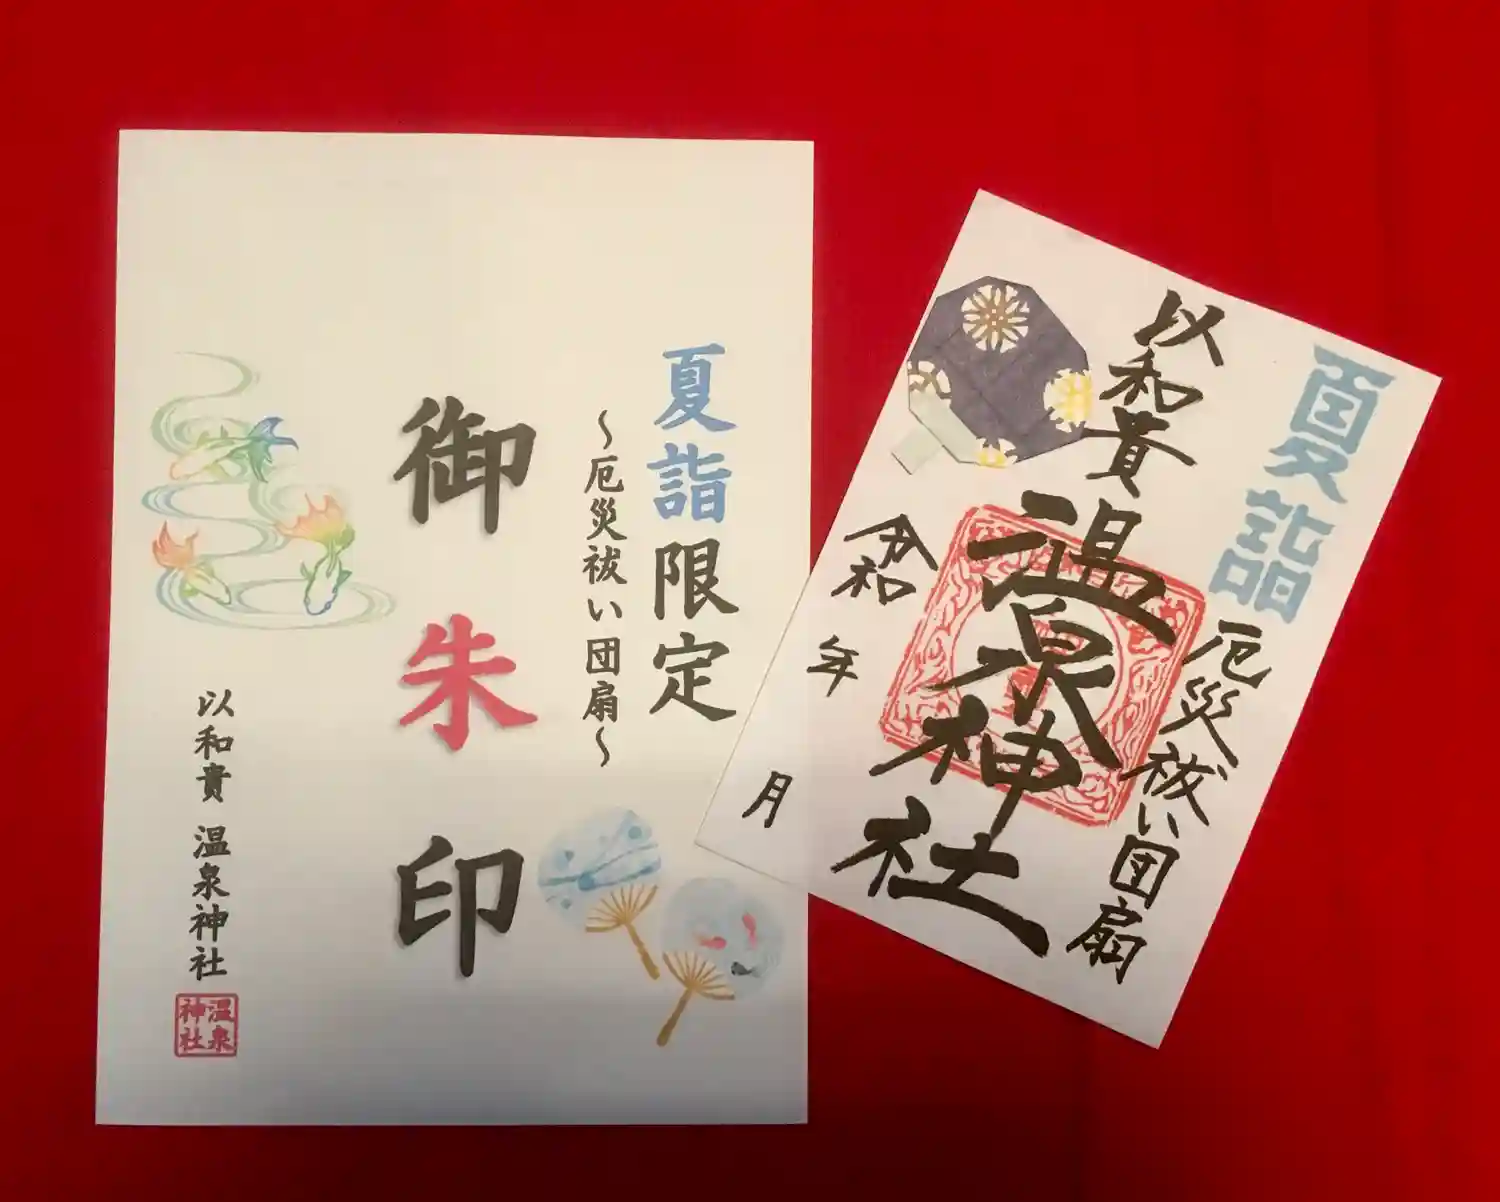 夏詣限定
～厄災祓い団扇～
御朱印
以和貴 温泉神社
温泉
神社
夏詣
厄災祓い団扇
以和貴
温泉神社
令和 年 月